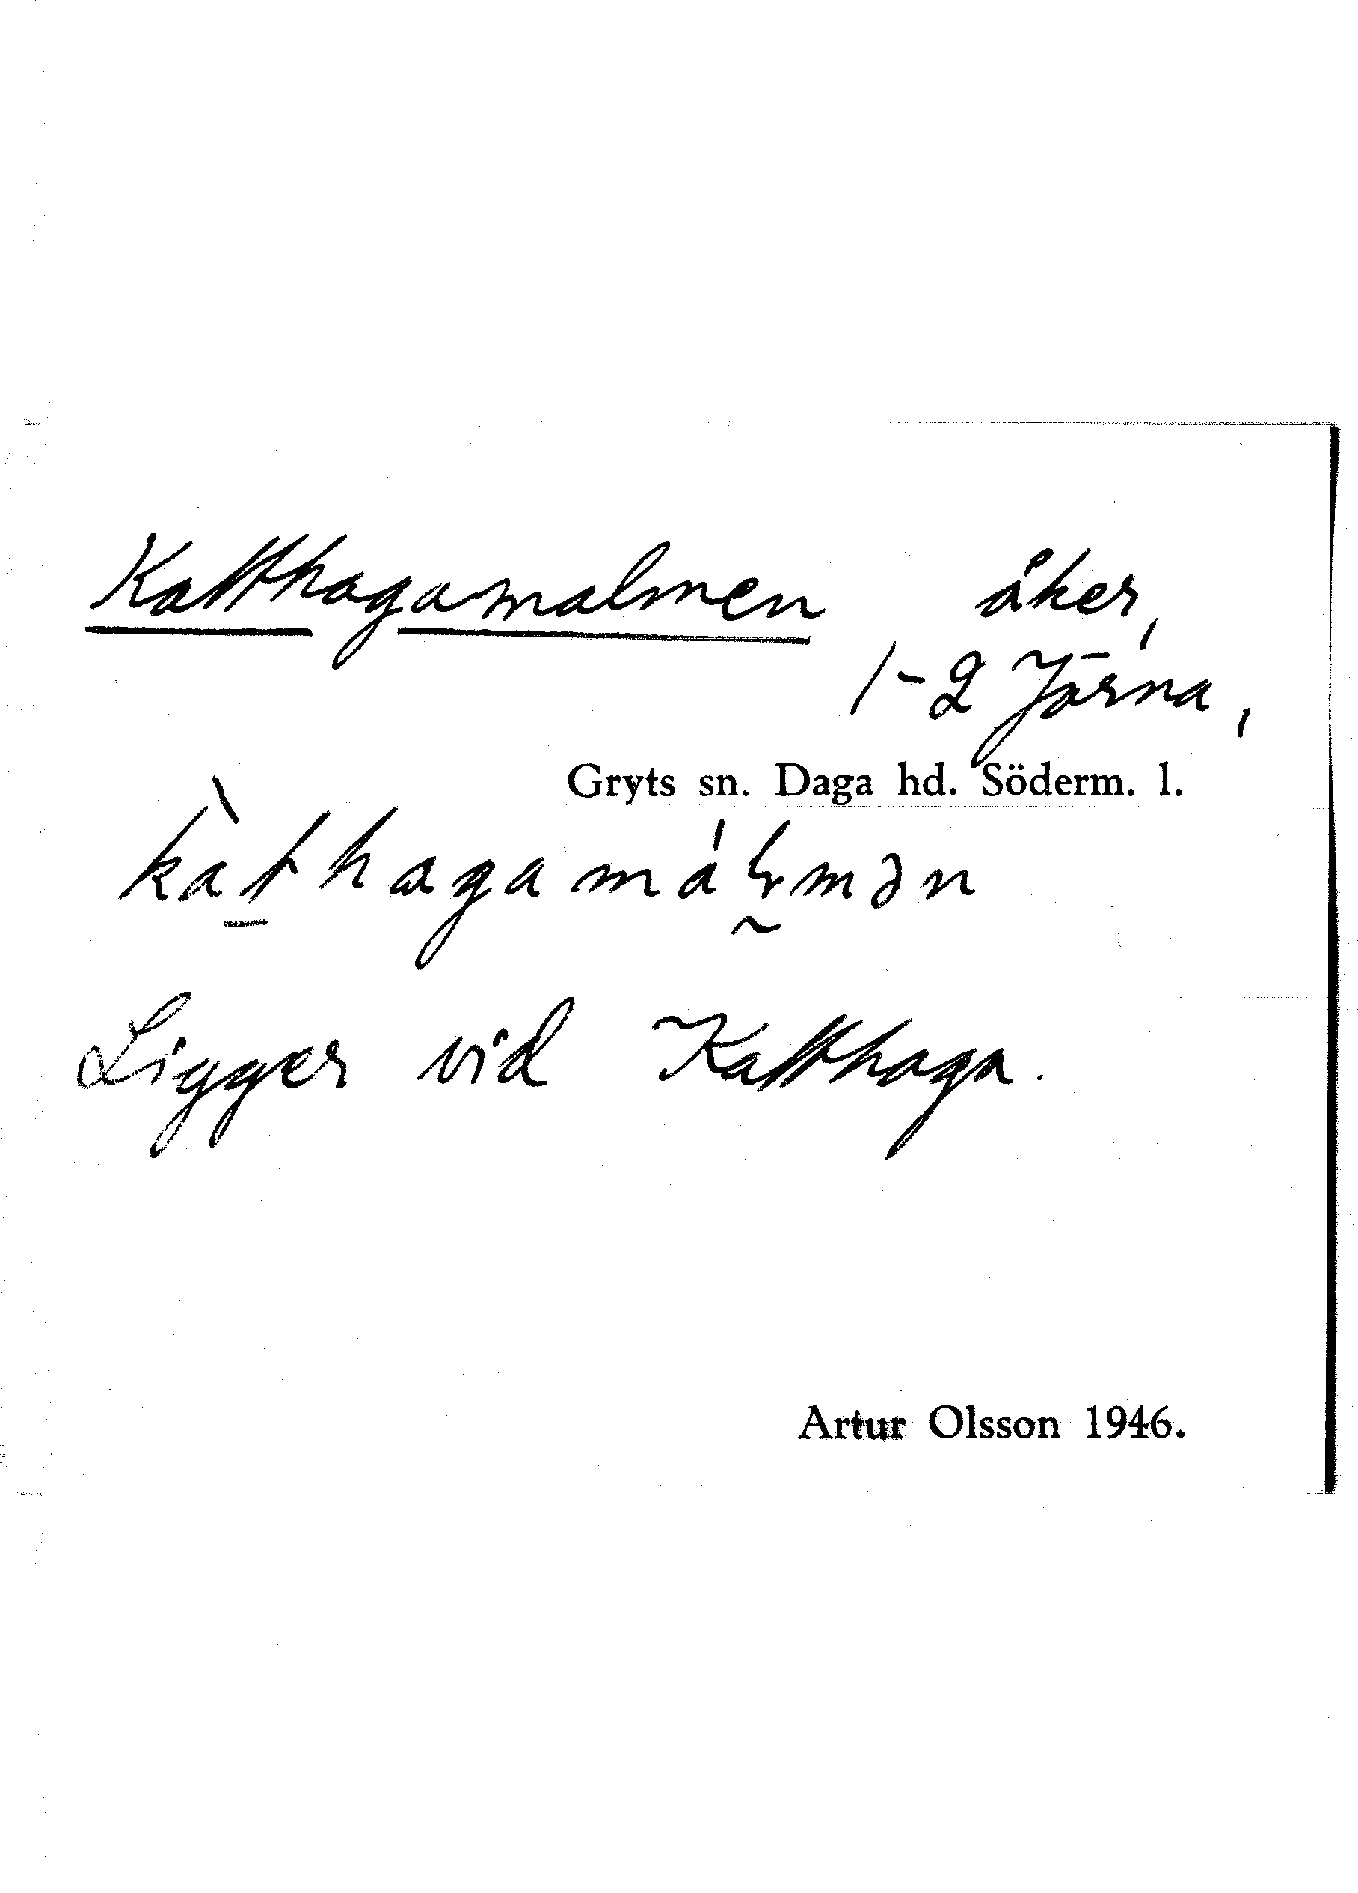 Katthagamalmen åker,
1-2 Järna,
Gryts sn. Daga hd. Söderm. l.
kàthagamálmən
Ligger vid Katthaga.
Artur Olsson 1946.